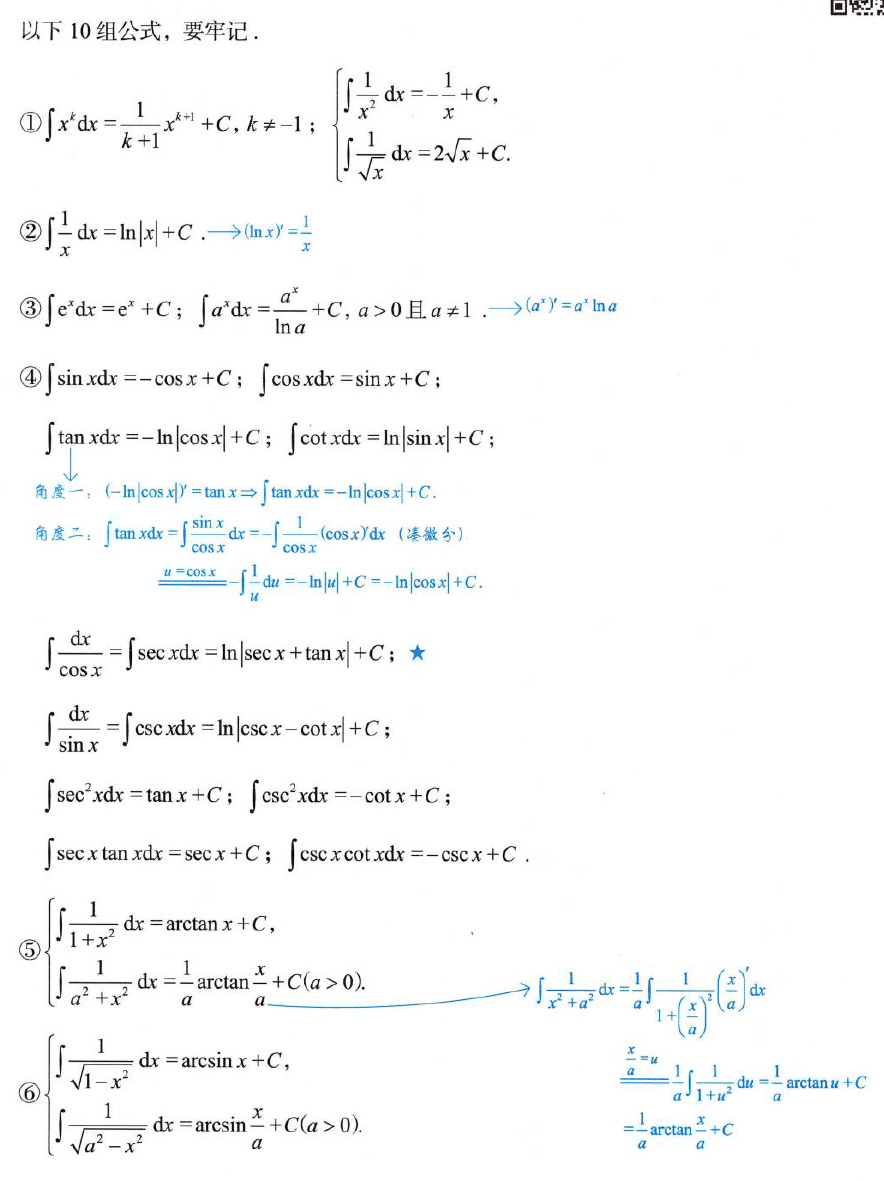 以下 10 组公式，要牢记．
①∫x^k dx = 1/(k+1) x^(k+1) + C, k ≠ −1； { ∫1/x² dx = −1/x + C,
∫1/√x dx = 2√x + C.
②∫1/x dx = ln|x| + C . → (ln x)′ = 1/x
③∫e^x dx = e^x + C； ∫a^x dx = a^x/ln a + C, a > 0 且 a ≠ 1 . → (a^x)′ = a^x ln a
④∫sin xdx = −cos x + C； ∫cos xdx = sin x + C；
∫tan xdx = −ln|cos x| + C； ∫cot xdx = ln|sin x| + C；
角度一：(−ln|cos x|)′ = tan x ⇒ ∫tan xdx = −ln|cos x| + C.
角度二：∫tan xdx = ∫sin x/cos x dx = −∫1/cos x (cos x)′dx（凑微分）
u = cos x −∫1/u du = −ln|u| + C = −ln|cos x| + C.
∫dx/cos x = ∫sec xdx = ln|sec x + tan x| + C；★
∫dx/sin x = ∫csc xdx = ln|csc x − cot x| + C；
∫sec²xdx = tan x + C； ∫csc²xdx = −cot x + C；
∫sec x tan xdx = sec x + C； ∫csc x cot xdx = −csc x + C .
⑤{ ∫1/(1+x²) dx = arctan x + C,
∫1/(a²+x²) dx = 1/a arctan x/a + C(a > 0). → ∫1/(x²+a²) dx = 1/a ∫1/(1+(x/a)²) (x/a)′dx
x/a = u 1/a ∫1/(1+u²) du = 1/a arctan u + C
= 1/a arctan x/a + C
⑥{ ∫1/√(1−x²) dx = arcsin x + C,
∫1/√(a²−x²) dx = arcsin x/a + C(a > 0).